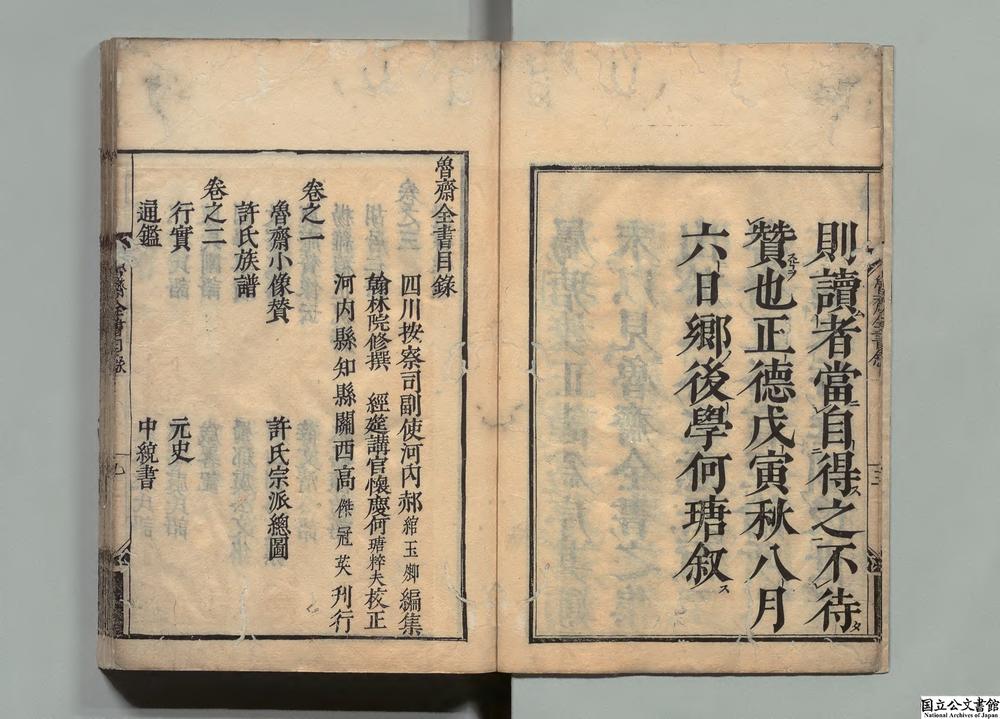 則讀者當自得之不待
贊也正德戊寅秋八月
六日鄉後學何瑭叙
魯齋全書目錄
四川按察司副使河內郝綰玉卿編集
翰林院修撰 經筵講官懷慶何瑭粹夫校正
河內縣知縣關西高傑冠英刊行
卷之一
魯齋小像贊 許氏宗派總圖
許氏族譜
卷之二
行實 元史
通鑑 中統書
國立公文書館
National Archives of Japan